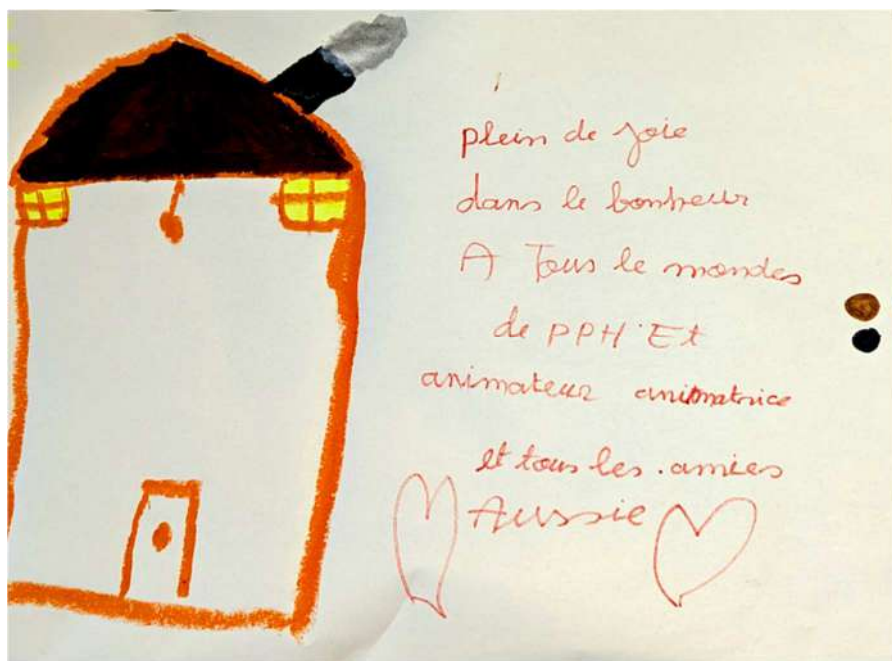 plein de joie
dans le bonheur
A Tous le mondes
de PPH Et
animateur animatrice
et tous les amies
Aussie